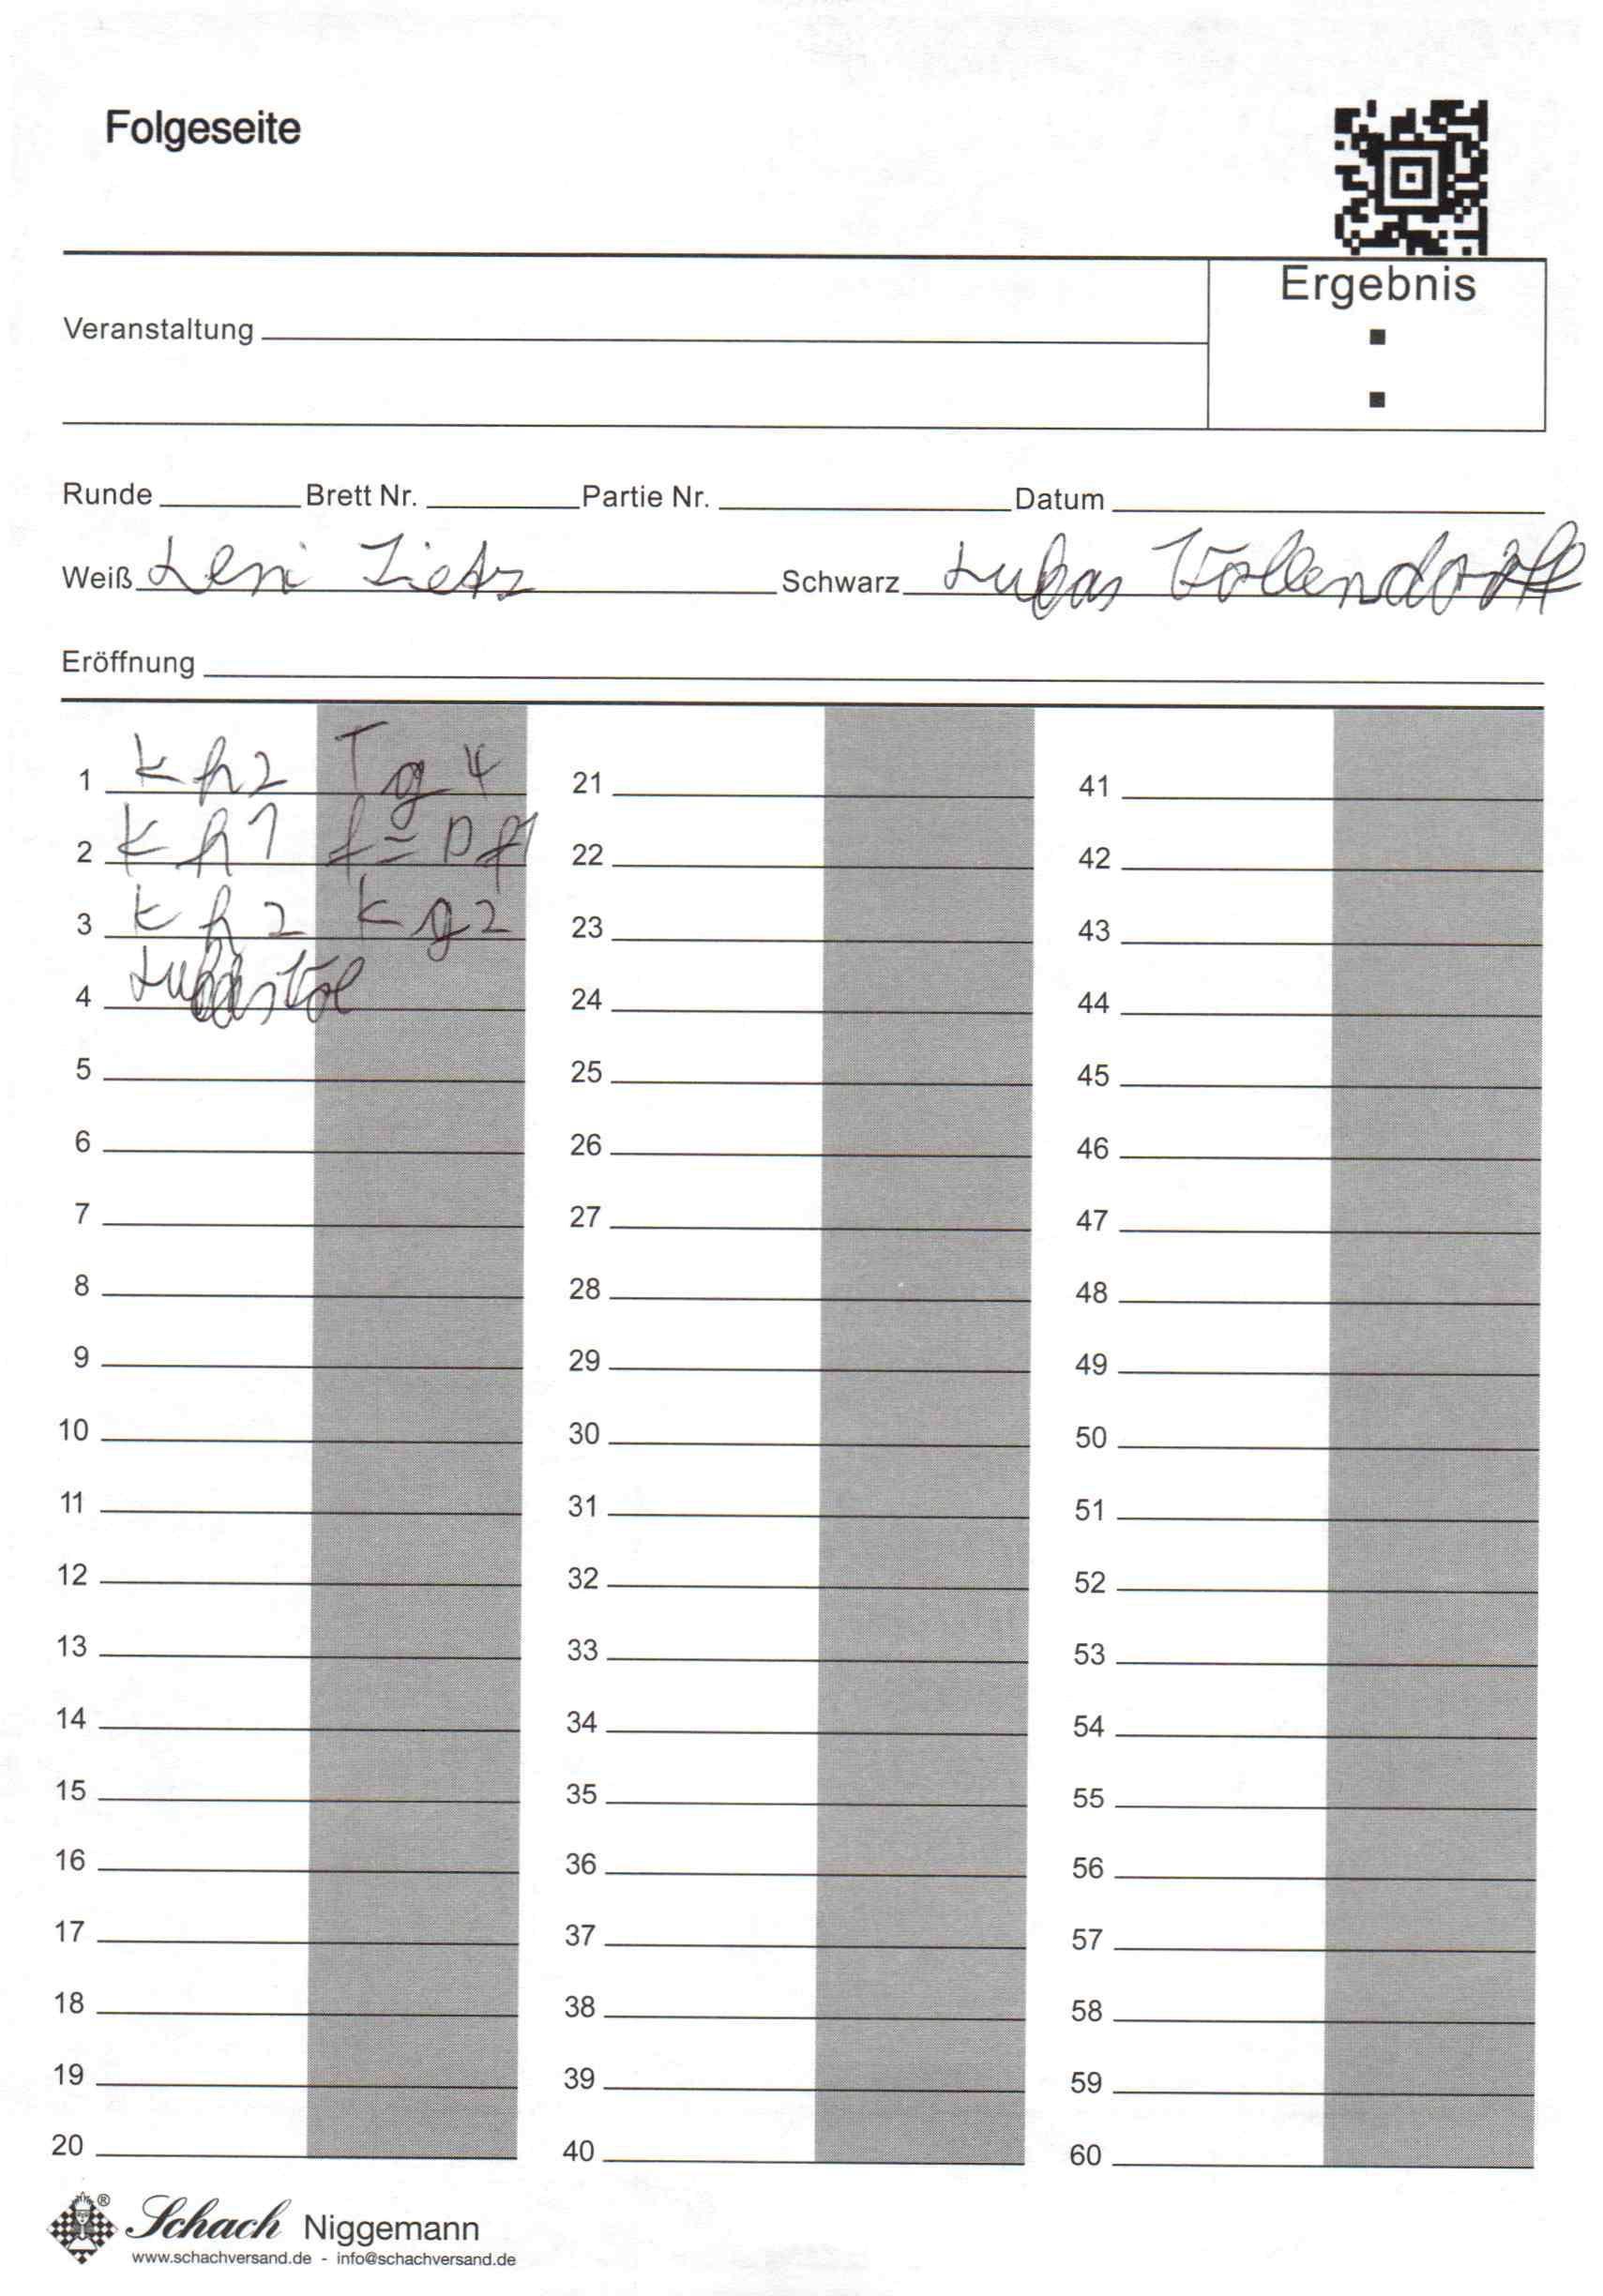 Folgeseite
Ergebnis
:
Veranstaltung
Runde Brett Nr. Partie Nr. Datum
Weiß Leni Lietz Schwarz Lukas Vollendorff
Eröffnung
1 Kh2 Tg4 21 41
2 Kh1 f=Df1 22 42
3 Kh2 Kg2 23 43
4 24 44
5 25 45
6 26 46
7 27 47
8 28 48
9 29 49
10 30 50
11 31 51
12 32 52
13 33 53
14 34 54
15 35 55
16 36 56
17 37 57
18 38 58
19 39 59
20 40 60
Schach Niggemann
www.schachversand.de - info@schachversand.de